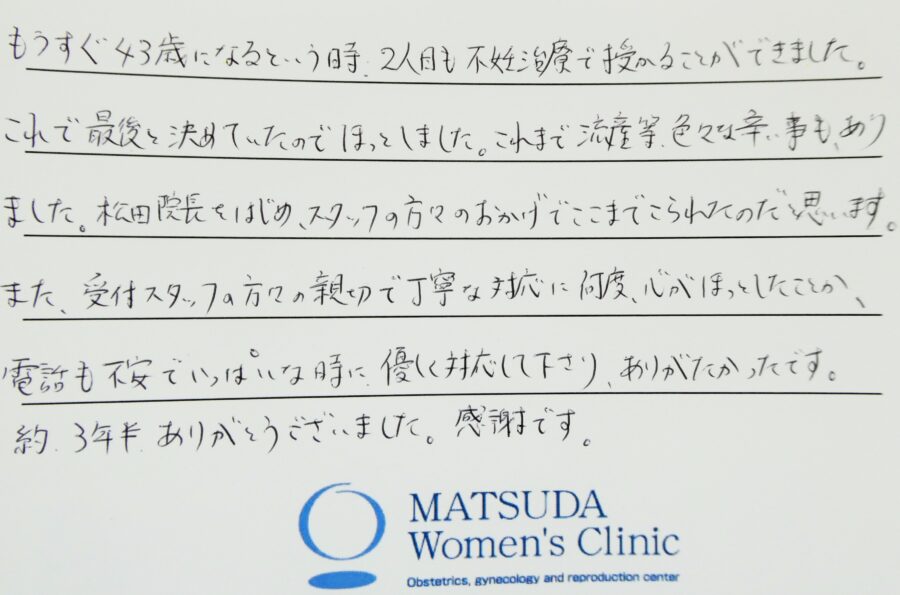 もうすぐ43歳になるという時、2人目も不妊治療で授かることができました。
これで最後と決めていたのでほっとしました。これまで流産等、色々な辛い事もあり
ました。松田院長をはじめ、スタッフの方々のおかげでここまでこられたのだと思います。
また、受付スタッフの方々の親切で丁寧な対応に何度、心がほっとしたことか、
電話も不安でいっぱいな時に、優しく対応して下さり、ありがたかったです。
約、3年半、ありがとうございました。感謝です。
MATSUDA
Women's Clinic
Obstetrics, gynecology and reproduction center